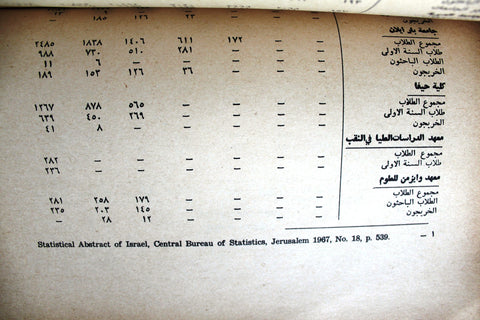 الخريجون — — — — ١٢٦ ١٨٥
جامعة بار ايلان
مجموع الطلاب — — — ١٧٢ ٦١١ ١٤٠٦ ١٨٣٨ ٢٤٨٥
طلاب السنة الاولى — — — — ٢٨١ ٥١٠ ٧٣٠ ٩٨٨
الطلاب الباحثون — — — — — — ٦ ١١
الخريجون — — — — ٣٦ ١٢٦ ١٥٣ ١٨٩
كلية حيفا
مجموع الطلاب — — — — — ٥٦٥ ٨٧٨ ١٢٦٧
طلاب السنة الاولى — — — — — ٢٦٩ ٤٥٠ ٦٣٩
الخريجون — — — — — — ٨ ٤١
معهد الدراسات العليا في النقب
مجموع الطلاب — — — — — — — ٢٨٢
طلاب السنة الاولى — — — — — — — ٢٣٦
معهد وايزمن للعلوم
مجموع الطلاب — — — — — ١٧٩ ٢٥٨ ٢٨١
الطلاب الباحثون — — — — — ١٤٥ ٢٠٣ ٢٣٥
الخريجون — — — — — ١٢ ٢٨ —
١ — Statistical Abstract of Israel, Central Bureau of Statistics, Jerusalem 1967, No. 18, p. 539.